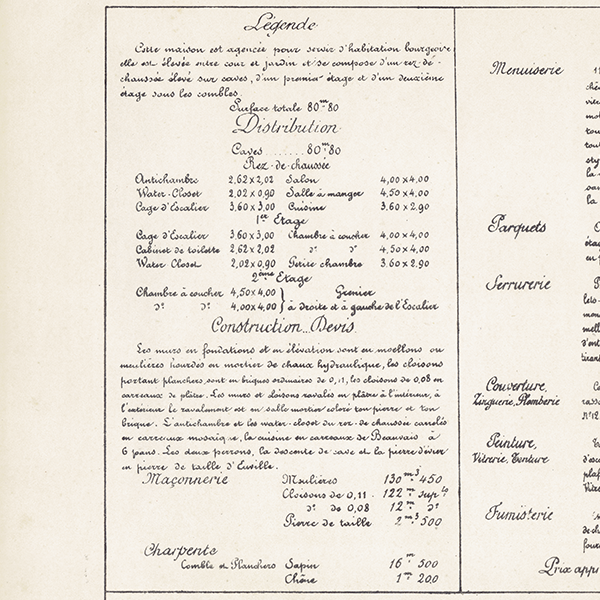 Légende
Cette maison est agencée pour servir d'habitation bourgeoise
elle est élevée entre cour et jardin et se compose d'un rez-de-
chaussée élevé sur caves, d'un premier étage et d'un deuxième
étage sous les combles.
Surface totale 80m80
Distribution
Caves ........ 80m80
Rez-de-chaussée
Antichambre 2,62 x 2,02 Salon 4,00 x 4.00
Water-Closet 2,02 x 0,90 Salle à manger 4,50 x 4.00
Cage d'Escalier 3.60 x 3,00 Cuisine 3.60 x 2.90
1er Etage
Cage d'Escalier 3.60 x 3.00 Chambre à coucher 4,00 x 4.00
Cabinet de toilette 2,62 x 2,02 d° d° 4,50 x 4.00
Water Closet 2,02 x 0,90 Petite chambre 3.60 x 2.90
2ème Etage
Chambre à coucher 4,50 x 4,00 } Grenier
d° d° 4,00 x 4.00 } à droite et à gauche de l'Escalier
Construction _ Devis
Les murs en fondations et en élévation sont en moellons ou
meulières hourdés en mortier de chaux hydraulique, les cloisons
portant planchers sont en briques ordinaires de 0,11, les cloisons de 0,08 en
carreaux de plâtre. Les murs et cloisons ravalés en plâtre à l'intérieur, à
l'extérieur le ravalement est en sable mortier coloré ton pierre et ton
brique. L'antichambre et les water-closet du rez-de chaussée carrelés
en carreaux mosaïque, la cuisine en carreaux de Beauvais à
6 pans. Les deux perrons, la descente de cave et la pierre d'évier
en pierre de taille d'Euville.
Maçonnerie Meulières 130m3 450
Cloisons de 0,11 . 122m suplle
d° de 0.08 12m d°
Pierre de taille 2m3 500
Charpente
Comble et Planchers Sapin 16m 500
Chêne 1m 200
Menuiserie
Parquets
Serrurerie
Couverture,
Zinguerie, Plomberie
Peinture,
Vitrerie, Tenture
Fumisterie
Prix appr